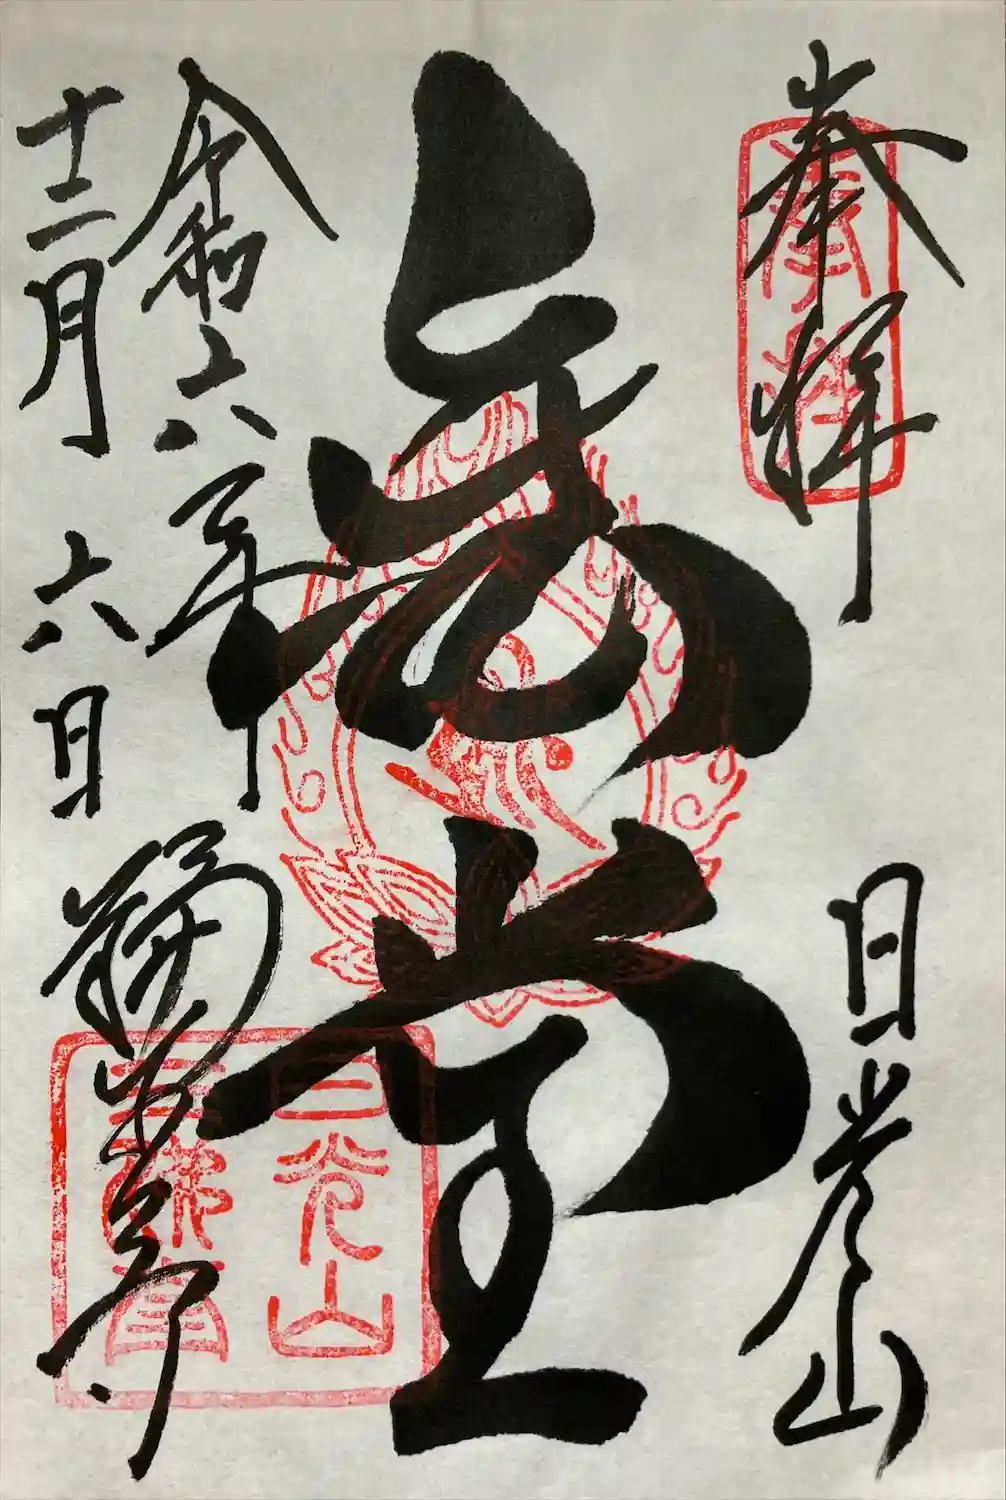 奉拝
日光山
金堂
令和六年
十二月六日
輪王寺
奉拝
日光山
三佛堂